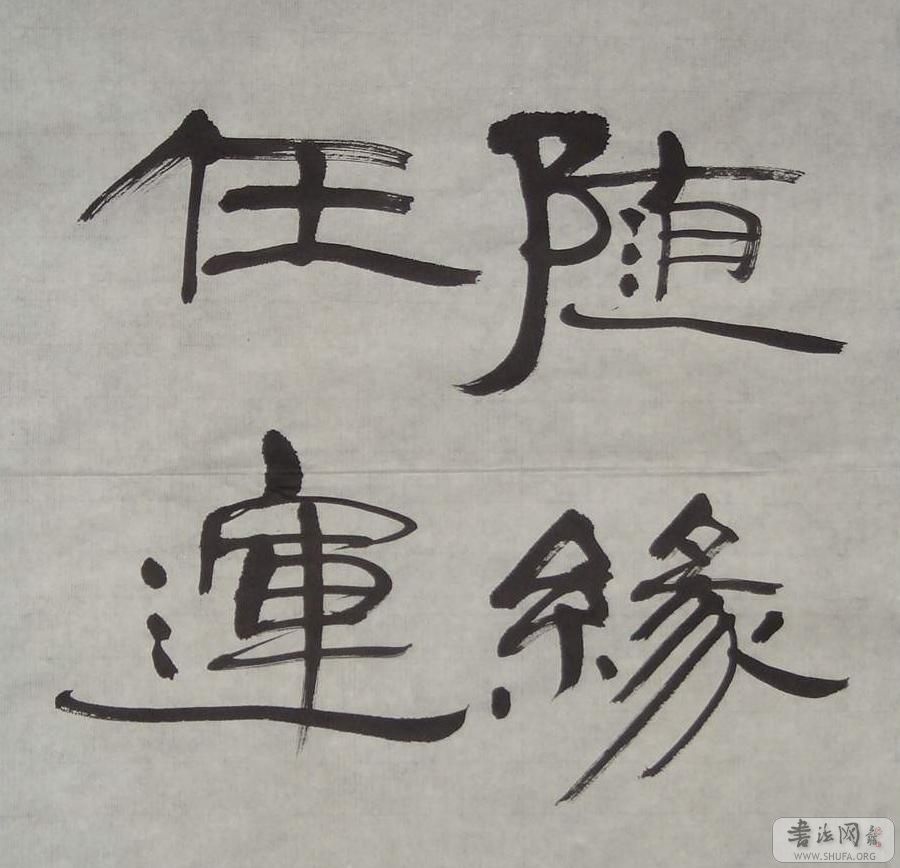 随缘
任運
書法网
WWW.SHUFA.ORG